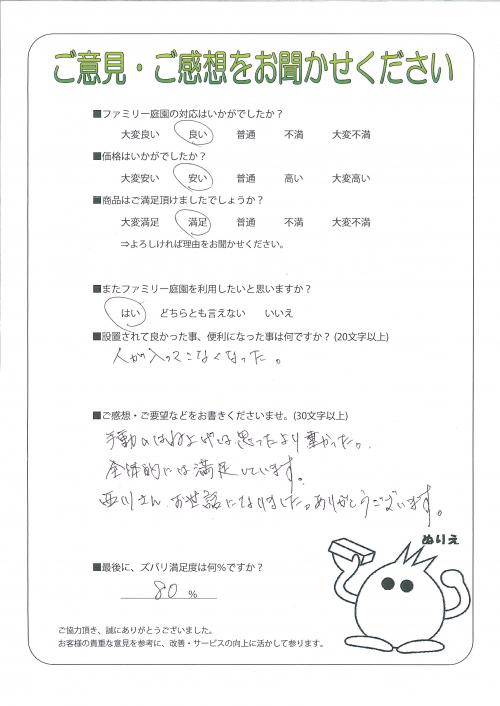 ご意見・ご感想をお聞かせください
■ファミリー庭園の対応はいかがでしたか？
大変良い 良い 普通 不満 大変不満
■価格はいかがでしたか？
大変安い 安い 普通 高い 大変高い
■商品はご満足頂けましたでしょうか？
大変満足 満足 普通 不満 大変不満
⇒よろしければ理由をお聞かせください。
■またファミリー庭園を利用したいと思いますか？
はい どちらとも言えない いいえ
■設置されて良かった事、便利になった事は何ですか？ (20文字以上)
人が入ってこなくなった。
■ご感想・ご要望などをお書きくださいませ。(30文字以上)
手動のはねよやは思ったより重かった。
全体的には満足しています。
西川さん お世話になりました。ありがとうございます。
ぬりえ
■最後に、ズバリ満足度は何%ですか？
80 %
ご協力頂き、誠にありがとうございました。
お客様の貴重な意見を参考に、改善・サービスの向上に活かして参ります。